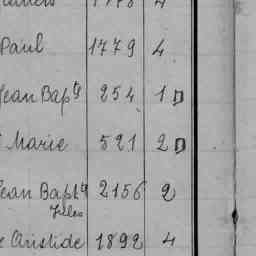 Paul 1779 4
Jean Bapte 254 1 D
Marie 521 2 D
Jean Bapte 2156 2
Jules
Aristide 1892 4